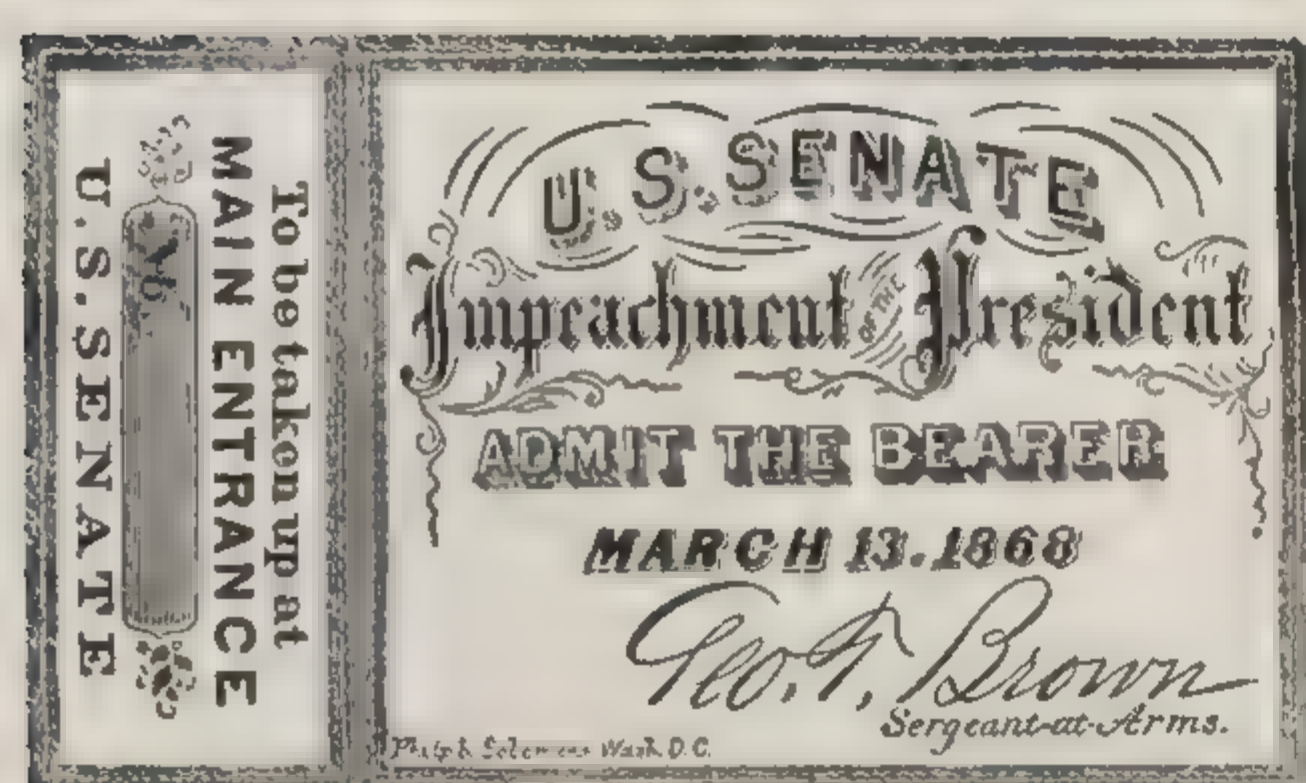 To be taken up at
MAIN ENTRANCE
No.
U.S. SENATE
U.S. SENATE
Impeachment OF THE President
ADMIT THE BEARER
MARCH 13. 1868
Geo. T. Brown
Sergeant-at-Arms.
Philp & Solomons Wash. D.C.